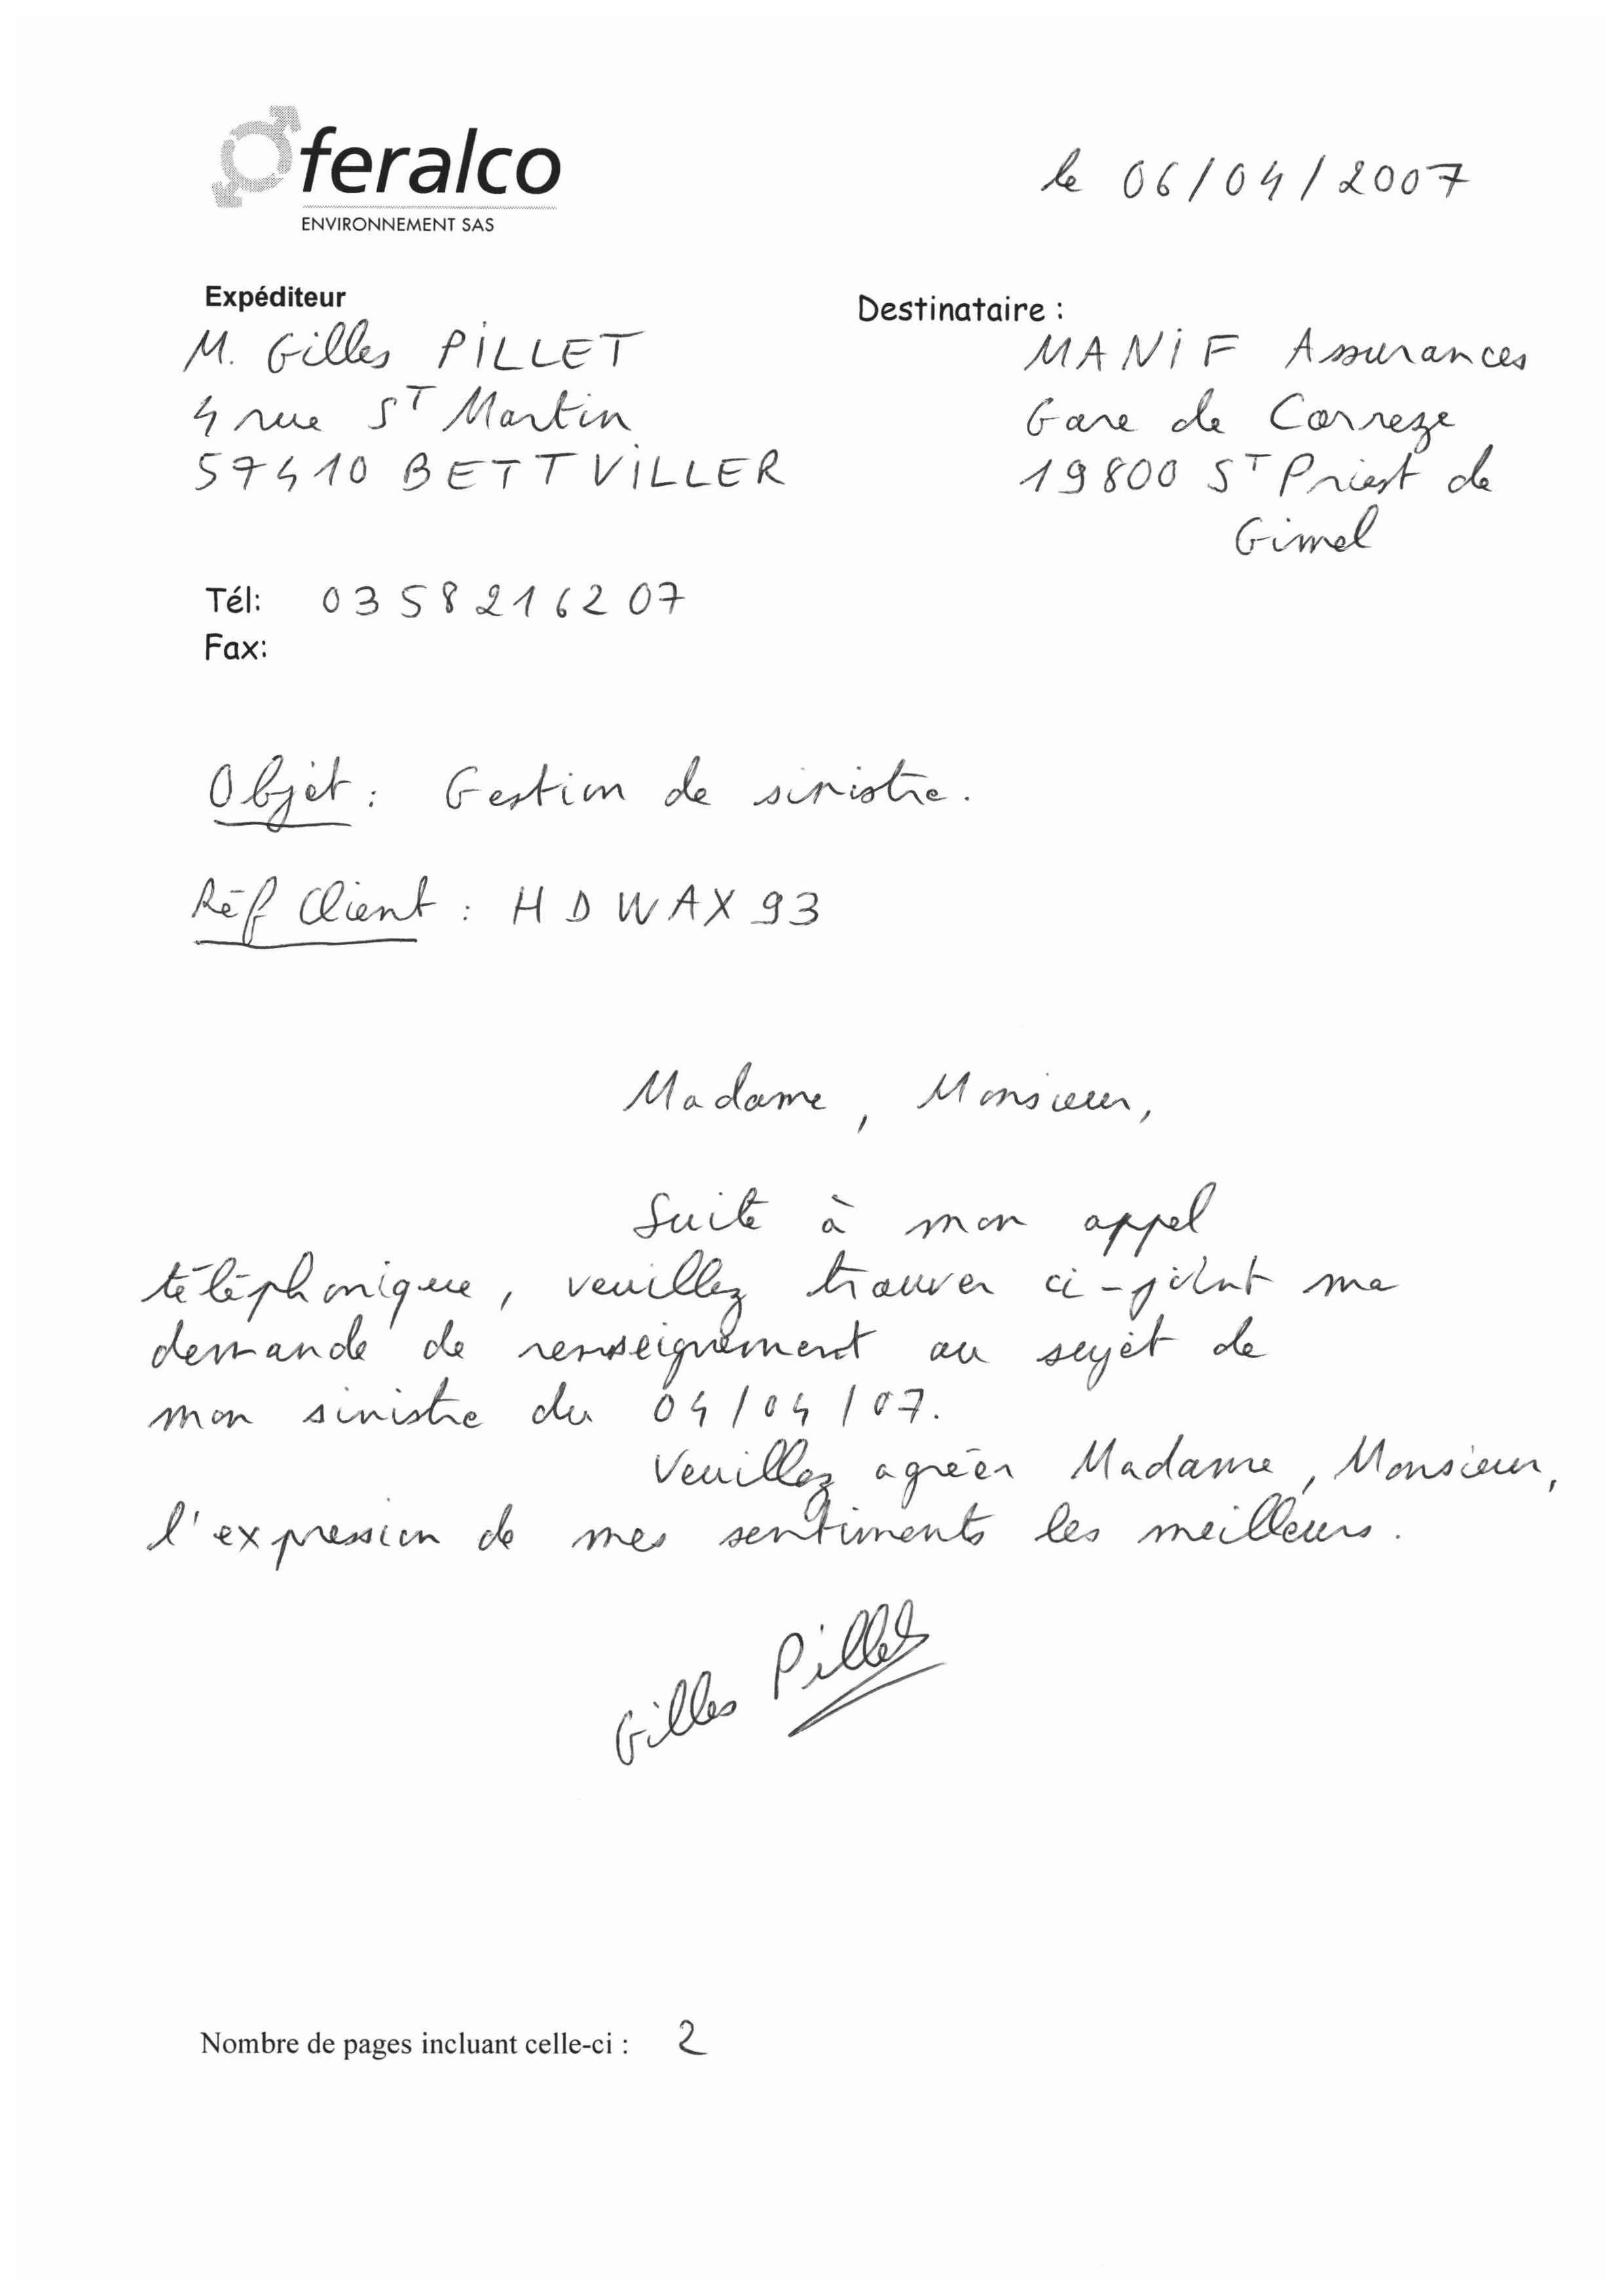 feralco
ENVIRONNEMENT SAS
le 06/04/2007
Expéditeur
M. Gilles PILLET
4 rue ST Martin
57410 BETTVILLER
Destinataire :
MANIF Assurances
Gare de Correze
19800 ST Priest de
Gimel
Tél: 0358216207
Fax:
Objet : Gestion de sinistre.
Réf Client : HDWAX93
Madame, Monsieur,
Suite à mon appel
téléphonique, veuillez trouver ci-joint ma
demande de renseignement au sujet de
mon sinistre du 04/04/07.
Veuillez agréer Madame, Monsieur,
l'expression de mes sentiments les meilleurs.
Gilles Pillet
Nombre de pages incluant celle-ci : 2